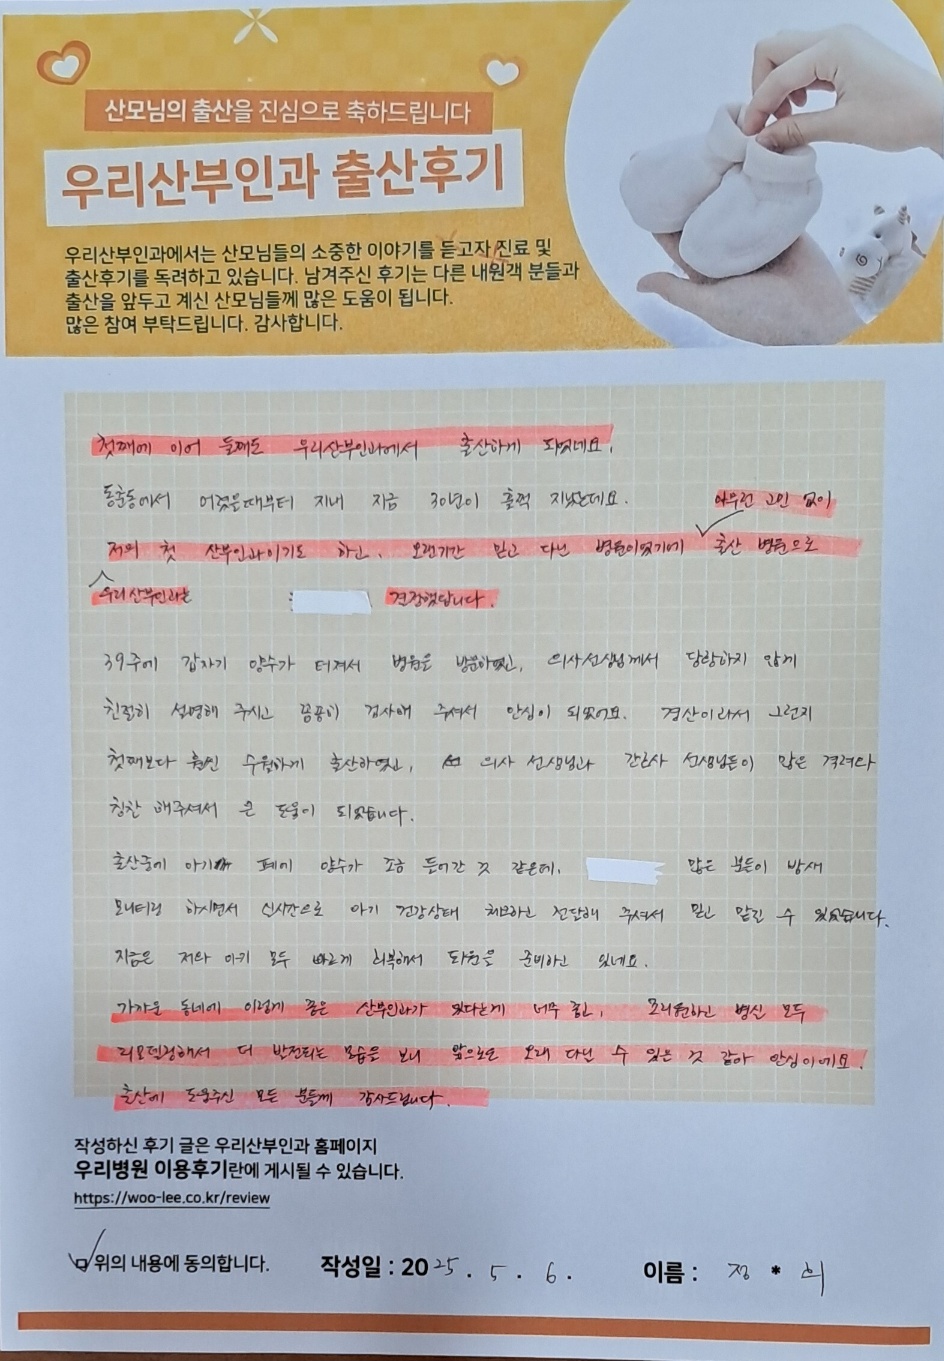 산모님의 출산을 진심으로 축하드립니다
우리산부인과 출산후기
우리산부인과에서는 산모님들의 소중한 이야기를 듣고자 진료 및
출산후기를 독려하고 있습니다. 남겨주신 후기는 다른 내원객 분들과
출산을 앞두고 계신 산모님들께 많은 도움이 됩니다.
많은 참여 부탁드립니다. 감사합니다.
첫째에 이어 둘째도 우리산부인과에서 출산하게 되었네요.
동춘동에서 어렸을때부터 지내 지금 30년이 훌쩍 지났는데요. 아무런 고민 없이
저의 첫 산부인과이기도 하고, 오랜기간 믿고 다닌 병원이었기에 출산 병원으로
우리산부인과는 결정했답니다.
39주에 갑자기 양수가 터져서 병원을 방문하였고, 의사선생님께서 당황하지 않게
친절히 설명해 주시고 꼼꼼히 검사해 주셔서 안심이 되었어요. 경산이라서 그런지
첫째보다 훨씬 수월하게 출산하였고, 의사 선생님과 간호사 선생님들이 많은 격려와
칭찬 해주셔서 큰 도움이 되었습니다.
출산중에 아기 폐에 양수가 조금 들어간 것 같은데, 많은 분들이 밤새
모니터링 하시면서 실시간으로 아기 건강상태 체크하고 전달해 주셔서 믿고 맡길 수 있었습니다.
지금은 저와 아기 모두 빠르게 회복해서 퇴원을 준비하고 있네요.
가까운 동네에 이렇게 좋은 산부인과가 있다는게 너무 좋고, 조리원하고 병실 모두
리모델링해서 더 발전되는 모습을 보니 앞으로도 오래 다닐 수 있은 것 같아 안심이에요.
출산에 도움주신 모든 분들께 감사드립니다.
작성하신 후기 글은 우리산부인과 홈페이지
우리병원 이용후기란에 게시될 수 있습니다.
https://woo-lee.co.kr/review
위의 내용에 동의합니다. 작성일 : 2025. 5. 6. 이름 : 정 * 희